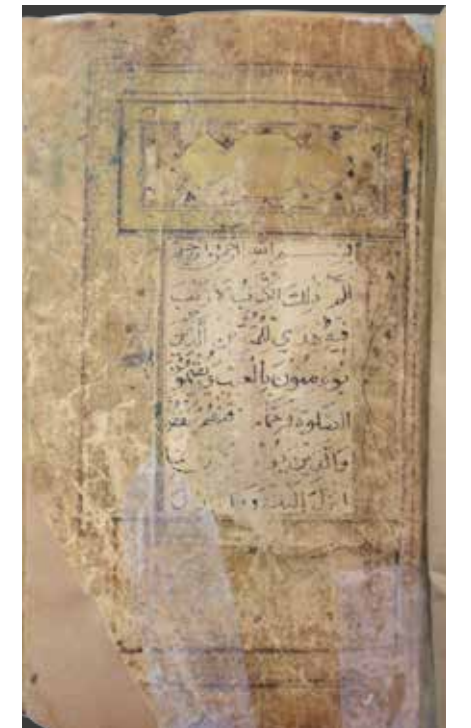 بسم الله الرحمن الرحيم
الم ذلك الكتب لا ريب
فيه هدى للمتقين الذين
يؤمنون بالغيب ويقيمون
الصلوة ومما
والذين يؤ بما
انزل اليك وما